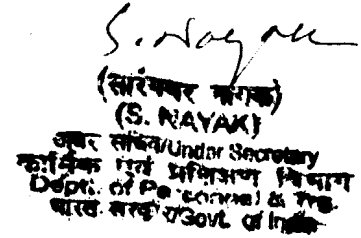 S. Nayak
(सारंगधर नायक)
(S. NAYAK)
अवर सचिव/Under Secretary
कार्मिक एवं प्रशिक्षण विभाग
Deptt. of Personnel & Trg.
भारत सरकार/Govt. of India